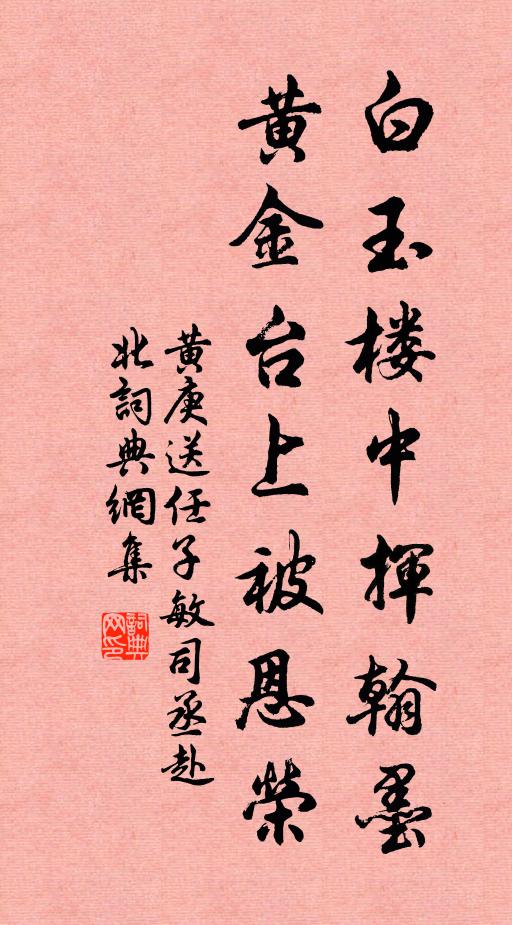 白玉楼中揮翰墨
黄金台上被恩榮
黄庚送任子敏司丞赴
北詞典網集
詞典网印